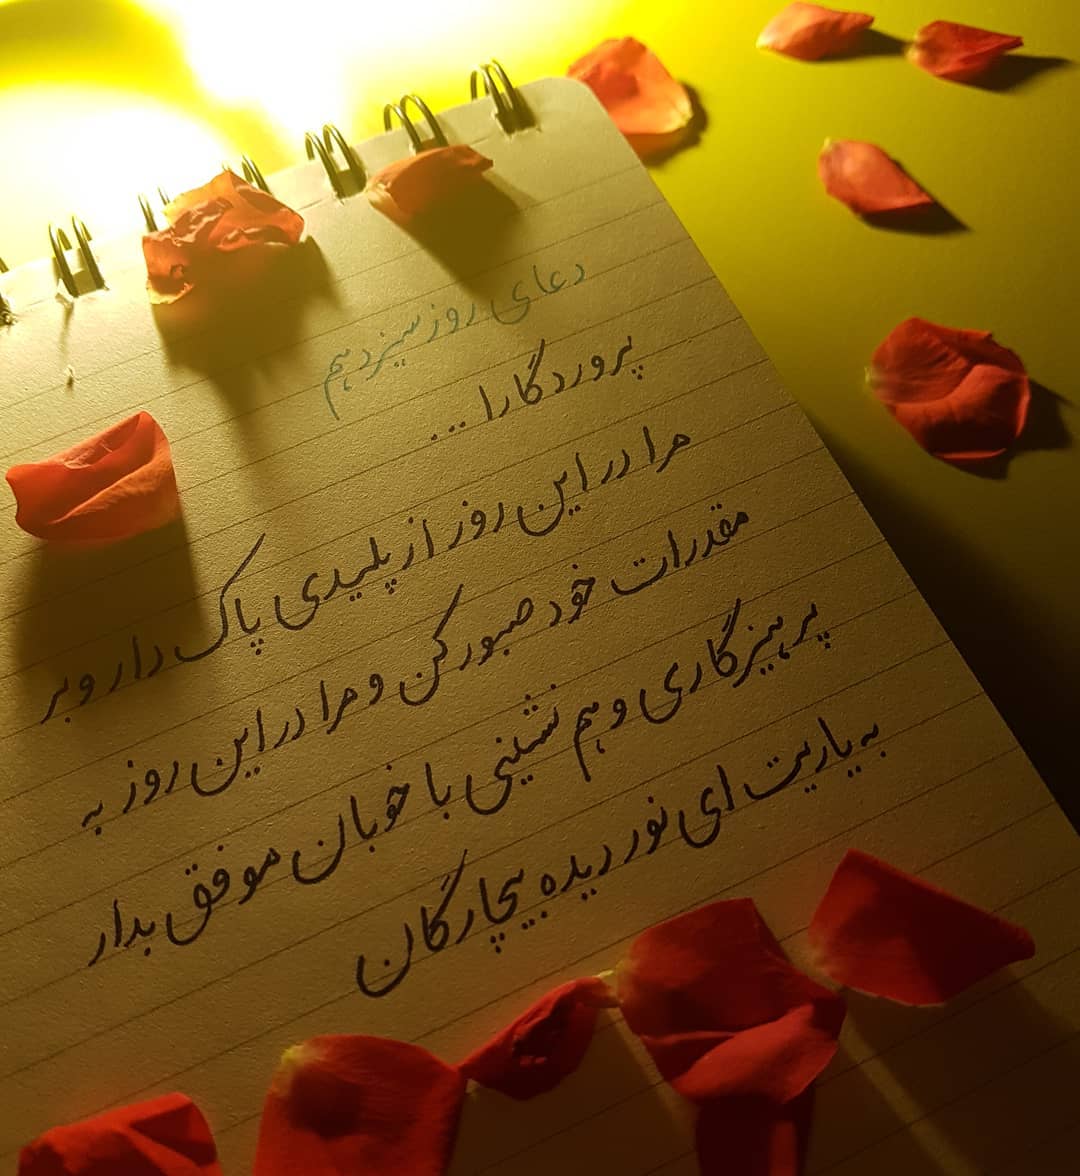 دعای روز سیزدهم
پروردگارا...
مرا در این روز از پلیدی پاک دار و بر
مقدرات خود صبور کن و مرا در این روز به
پرهیزگاری و هم نشینی با خوبان موفق بدار
به یاریت ای نور دیده بیچارگان